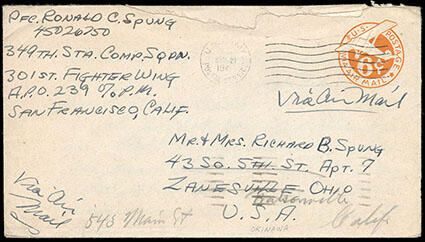 Pfc. Ronald C. Spung
45026750
349th. Sta. Comp. Sqdn.
301st. Fighter Wing
A.P.O. 239 % P.M.
San Francisco, Calif.
U.S. POSTAGE
VIA AIR MAIL
Via Air Mail
Mr. & Mrs. Richard B. Spung
43 So. 5th. St. Apt. 7
Zanesville Ohio
U.S.A.
Calif
Via Air
Mail
543 Main St
OKINAWA